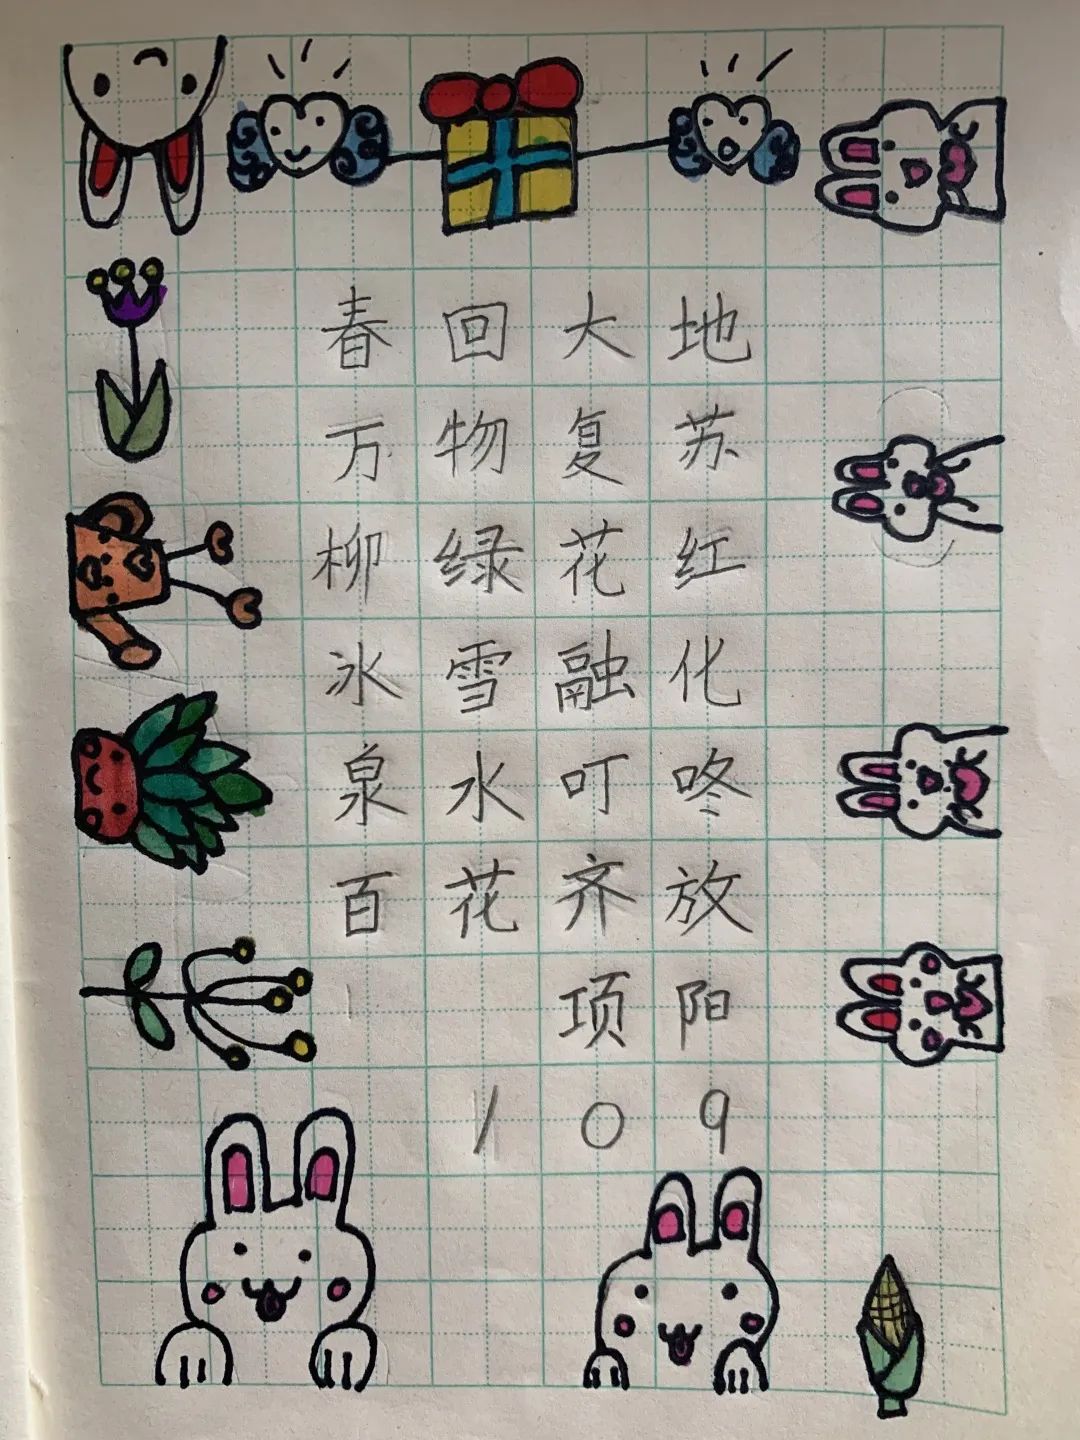 春回大地
万物复苏
柳绿花红
冰雪融化
泉水叮咚
百花齐放
项阳
109